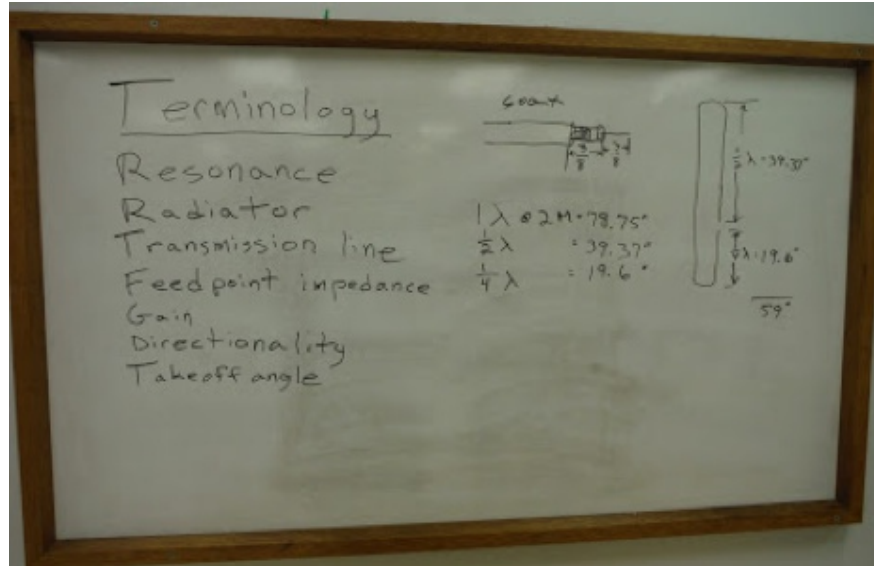 Terminology
Resonance
Radiator
Transmission line
Feedpoint impedance
Gain
Directionality
Takeoff angle
coax
1 λ @ 2M = 78.75"
1/2 λ = 39.37"
1/4 λ = 19.6"
1/2 λ = 39.37"
1/4 λ = 19.6"
59"